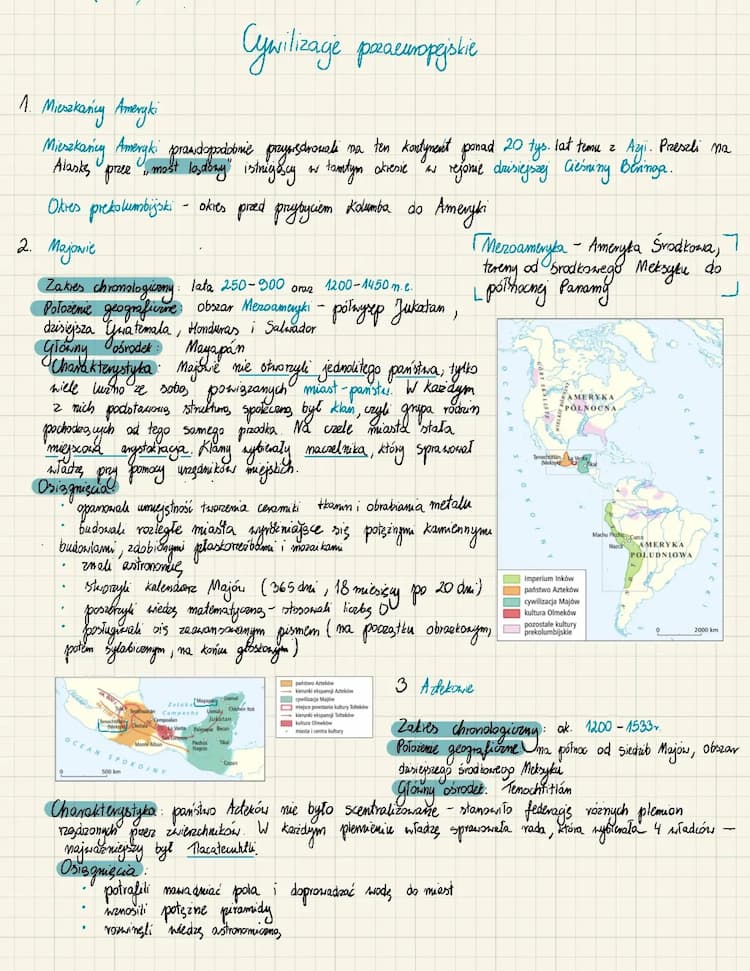 Cywilizacje pozaeuropejskie
1. Mieszkańcy Ameryki
Mieszkańcy Ameryki prawdopodobnie przywędrowali na ten kontynent ponad 20 tys. lat temu z Azji. Przeszli na
Alaskę przez „most lądowy" istniejący w tamtym okresie w rejonie dzisiejszej Cieśniny Beringa.
Okres prekolumbijski - okres przed przybyciem Kolumba do Ameryki
2. Majowie
Mezoameryka - Ameryka Środkowa,
tereny od środkowego Meksyku do
północnej Panamy
Zakres chronologiczny: lata 250-900 oraz 1200-1450 n.e.
Położenie geograficzne: obszar Mezoameryki - półwysep Jukatan,
dzisiejsza Gwatemala, Honduras i Salwador
Główny ośrodek: Mayapán
Charakterystyka: Majowie nie otworzyli jednolitego państwa, tylko
wiele luźno ze sobą powiązanych miast-państw. W każdym
z nich podstawową strukturą społeczną był klan, czyli grupa rodzin
pochodzących od tego samego przodka. Na czele miasta stała
miejscowa arystokracja. Klany wybierały naczelnika, który sprawował
władzę przy pomocy urzędników miejskich.
Osiągnięcia:
• opanowali umiejętność tworzenia ceramiki tkanin i obrabiania metalu
• budowali rozległe miasta wyróżniające się potężnymi kamiennymi
budowlami, zdobionymi płaskorzeźbami i mozaikami
• znali astronomię
• stworzyli kalendarz Majów (365 dni, 18 miesięcy po 20 dni)
• poszerzyli wiedzę matematyczną - stosowali liczbę 0
• posługiwali się zaawansowanym pismem (na początku obrazkowym,
potem sylabicznym, na końcu głoskowym)
GÓRY SKALISTE
WIELKIE RÓWNINY
AMERYKA
PÓŁNOCNA
Tenochtitlán
(Meksyk)
La Venta
Tikal
Machu Picchu
Cuzco
Nazca
AMERYKA
POŁUDNIOWA
imperium Inków
państwo Azteków
cywilizacja Majów
kultura Olmeków
pozostałe kultury
prekolumbijskie
0 2000 km
Zatoka
Campeche
Mayapán
Uxmal
Chichén Itzá
Jukatan
Teotihuacán
Tenochtitlán
Cholula
Campoalan
La Venta
Monte Albán
Palenque
Becan
Piedras
Negras
Tikal
Copán
OCEAN SPOKOJNY
0 500 km
państwo Azteków
kierunki ekspansji Azteków
cywilizacja Majów
miejsce powstania kultury Tolteków
kierunki ekspansji Tolteków
kultura Olmeków
miasta i centra kultury
3 Aztekowie
Zakres chronologiczny: ok. 1200-1533r.
Położenie geograficzne: na północ od siedzib Majów, obszar
dzisiejszego środkowego Meksyku
Główny ośrodek: Tenochtitlán
Charakterystyka: państwo Azteków nie było scentralizowane - stanowiło federację różnych plemion
rządzonych przez zwierzchników. W każdym plemieniu władzę sprawowała rada, która wybierała 4 władców -
najważniejszy był Tlacatecuhtli.
Osiągnięcia:
• potrafili nawadniać pola i doprowadzać wodę do miast
• wznosili potężne piramidy
• rozwinęli wiedzę astronomiczną